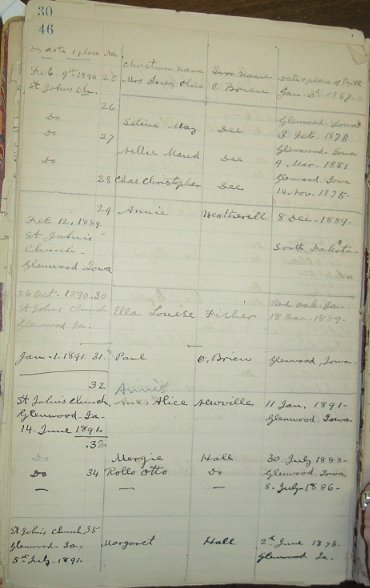 30
46
date & place No. Christian Name Surname Date & place of birth
Feb. 9th 1890 25 Mrs Lucy Olive O'Brien Jan. 3d 1867.
St Johns Ch.
26 Glenwood Iowa
Do Selina May Dee 3 Feb. 1878
Do 27 Glenwood Iowa
Nellie Maud Dee 9 Mar. 1881
Do Glenwood Iowa
28 Chas Christopher Dee 14 Nov. 1875-
29 Annie Weatherill 8 Dec. 1889-
Feb 12, 1889
St John's South Dakota
Church -
Glenwood Iowa
26 Oct. 1890. 30 Red Oak Ia-
St John's Church Ella Louise Fisher 18 Dec.
Glenwood Ia.
Jan. 1. 1891 31. Paul O'Brien Glenwood Iowa.
32 Annie
St John's Church Alice Newville 11 Jan. 1891-
Glenwood Ia- Glenwood Iowa
14 June 1891.
33
Do Mergie Hall 30 July 1883-
Do 34 Rollo Otto Do Glenwood Iowa
— — — 8 July 1886-
St John's Church, 35
Glenwood - Ia. Margaret Hall 2d June 1878
5th July 1891. Glenwood Ia.